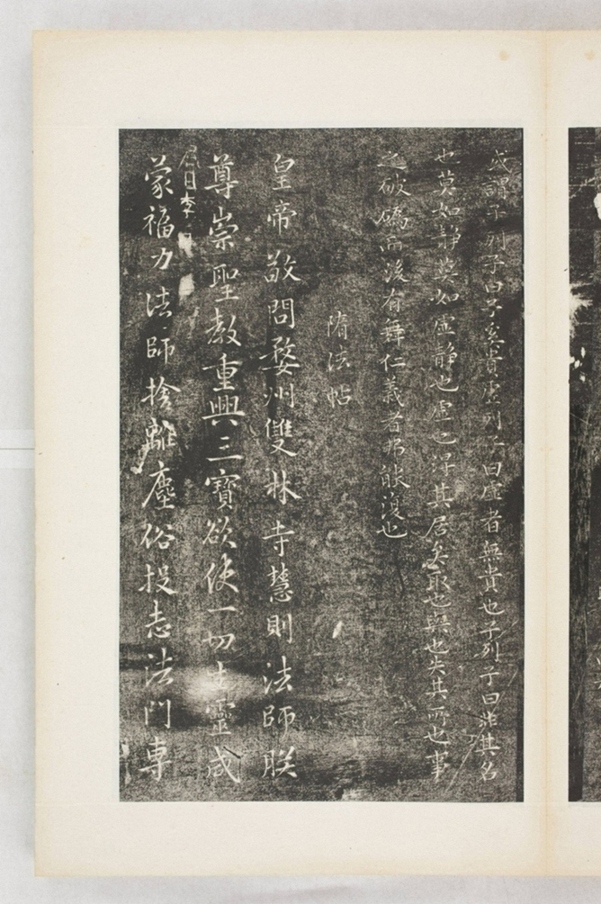 或謂子列子曰子奚貴虛列子曰虛者無貴也子列子曰非其名
也莫如靜莫如虛靜也虛也得其居矣取也與也失其所也事
之破䃣而後有舞仁義者弗能復也
隋法帖
皇帝敬問婺州雙林寺慧則法師朕
尊崇聖教重興三寶欲使一切生靈咸
蒙福力法師捨離塵俗投志法門專